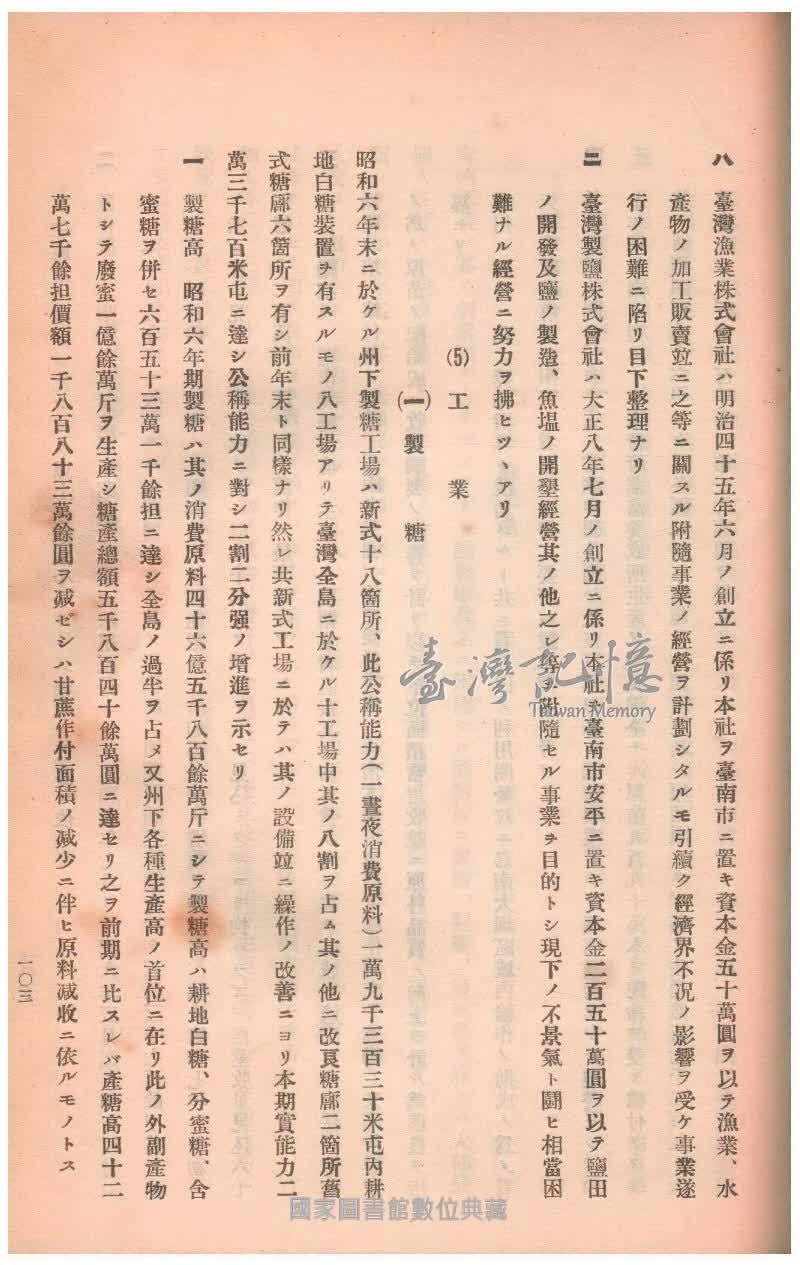 八　臺灣漁業株式會社ハ明治四十五年六月ノ創立ニ係リ本社ヲ臺南市ニ置キ資本金五十萬圓ヲ以テ漁業、水
產物ノ加工販賣竝ニ之等ニ關スル附隨事業ノ經營ヲ計劃シタルモ引續ク經濟界不況ノ影響ヲ受ケ事業遂
行ノ困難ニ陷リ目下整理ナリ
二　臺灣製鹽株式會社ハ大正八年七月ノ創立ニ係リ本社ヲ臺南市安平ニ置キ資本金二百五十萬圓ヲ以テ鹽田
ノ開發及鹽ノ製造、魚塭ノ開墾經營其ノ他之レ等ヲ附隨セル事業ヲ目的トシ現下ノ不景氣ト鬪ヒ相當困
難ナル經營ニ努力ヲ拂ヒツヽアリ
(5) 工業
(一) 製糖
昭和六年末ニ於ケル州下製糖工場ハ新式十八箇所、此公稱能力(一晝夜消費原料)一萬九千三百三十米屯內耕
地白糖裝置ヲ有スルモノ八工場アリテ臺灣全島ニ於ケル十工場中其ノ八割ヲ占ム其ノ他ニ改良糖廍二箇所舊
式糖廍六箇所ヲ有シ前年末ト同樣ナリ然レ共新式工場ニ於テハ其ノ設備竝ニ繰作ノ改善ニヨリ本期實能力二
萬三千七百米屯ニ達シ公稱能力ニ對シ二割二分强ノ增進ヲ示セリ
一　製糖高　昭和六年期製糖ハ其ノ消費原料四十六億五千八百餘萬斤ニシテ製糖高ハ耕地白糖、分蜜糖、含
蜜糖ヲ併セ六百五十三萬一千餘担ニ達シ全島ノ過半ヲ占メ又州下各種生產高ノ首位ニ在リ此ノ外副產物
トシテ廢蜜一億餘萬斤ヲ生產シ糖產總額五千八百四十餘萬圓ニ達セリ之ヲ前期ニ比スレバ產糖高四十二
萬七千餘担價額一千八百八十三萬餘圓ヲ減ゼシハ甘蔗作付面積ノ減少ニ伴ヒ原料減收ニ依ルモノトス
一〇三
臺灣記憶
Taiwan Memory
國家圖書館數位典藏